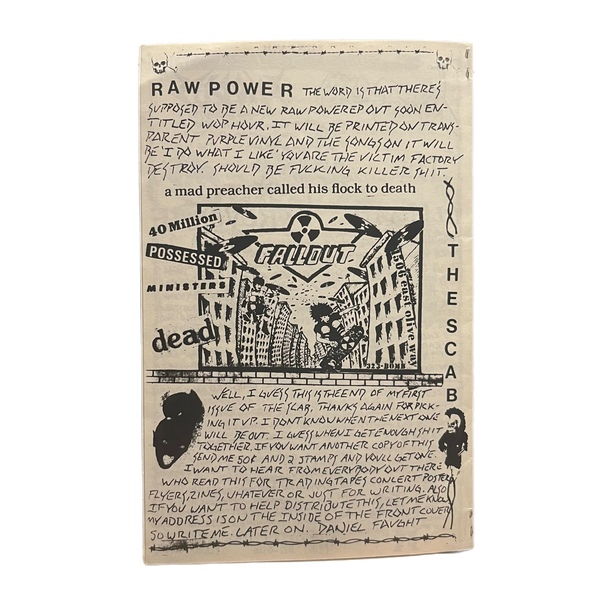 RAW POWER THE WORD IS THAT THERE'S
SUPPOSED TO BE A NEW RAW POWER EP OUT SOON EN-
TITLED WOP HOUR. IT WILL BE PRINTED ON TRANS-
PARENT PURPLE VINYL AND THE SONGS ON IT WILL
BE 'I DO WHAT I LIKE' YOU ARE THE VICTIM FACTORY
DESTROY. SHOULD BE FUCKING KILLER SHIT.
a mad preacher called his flock to death
40 Million
POSSESSED
MINISTERS
dead
FALLOUT
1506 east olive way
323-BOMB
THE SCAB
WELL, I GUESS THIS IS THE END OF MY FIRST
ISSUE OF THE SCAB, THANKS AGAIN FOR PICK-
ING IT UP. I DONT KNOW WHEN THE NEXT ONE
WILL BE OUT. I GUESS WHEN I GET ENOUGH SHIT
TOGETHER. IF YOU WANT ANOTHER COPY OF THIS
SEND ME 50¢ AND 2 STAMPS AND YOU'LL GET ONE.
I WANT TO HEAR FROM EVERYBODY OUT THERE
WHO READ THIS FOR TRADING TAPES CONCERT POSTERS
FLYERS, ZINES, WHATEVER OR JUST FOR WRITING. ALSO
IF YOU WANT TO HELP DISTRIBUTE THIS, LET ME KNOW
MY ADDRESS IS ON THE INSIDE OF THE FRONT COVER
SO WRITE ME. LATER ON. DANIEL FAUGHT